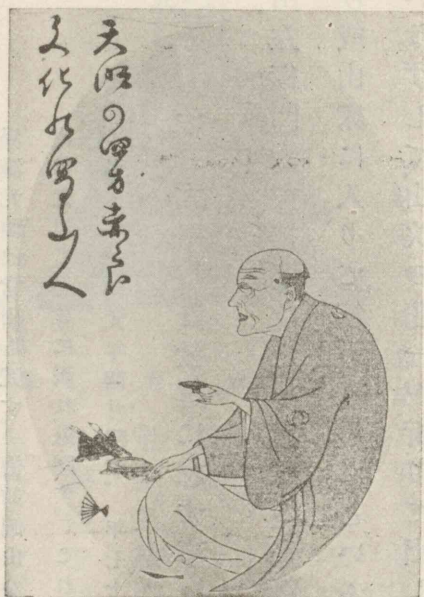 天明の四方赤良
文化の蜀山人